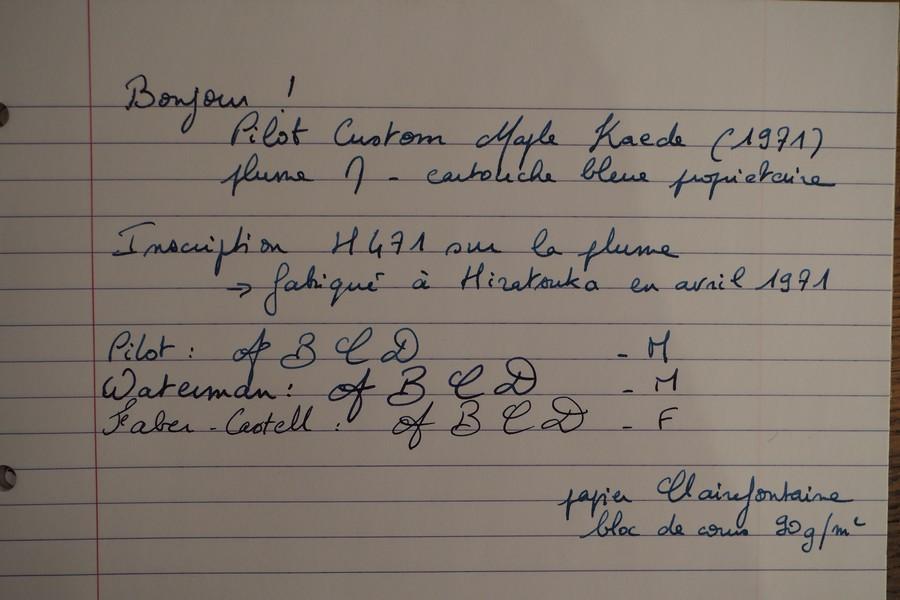 Bonjour !
Pilot Custom Maple Kaede (1971)
plume M - cartouche bleue propriétaire
Inscription H471 sur la plume
→ fabriqué à Hiratsuka en avril 1971
Pilot : A B C D - M
Waterman : A B C D - M
Faber-Castell : A B C D - F
papier Clairefontaine
bloc de cours 90g/m²